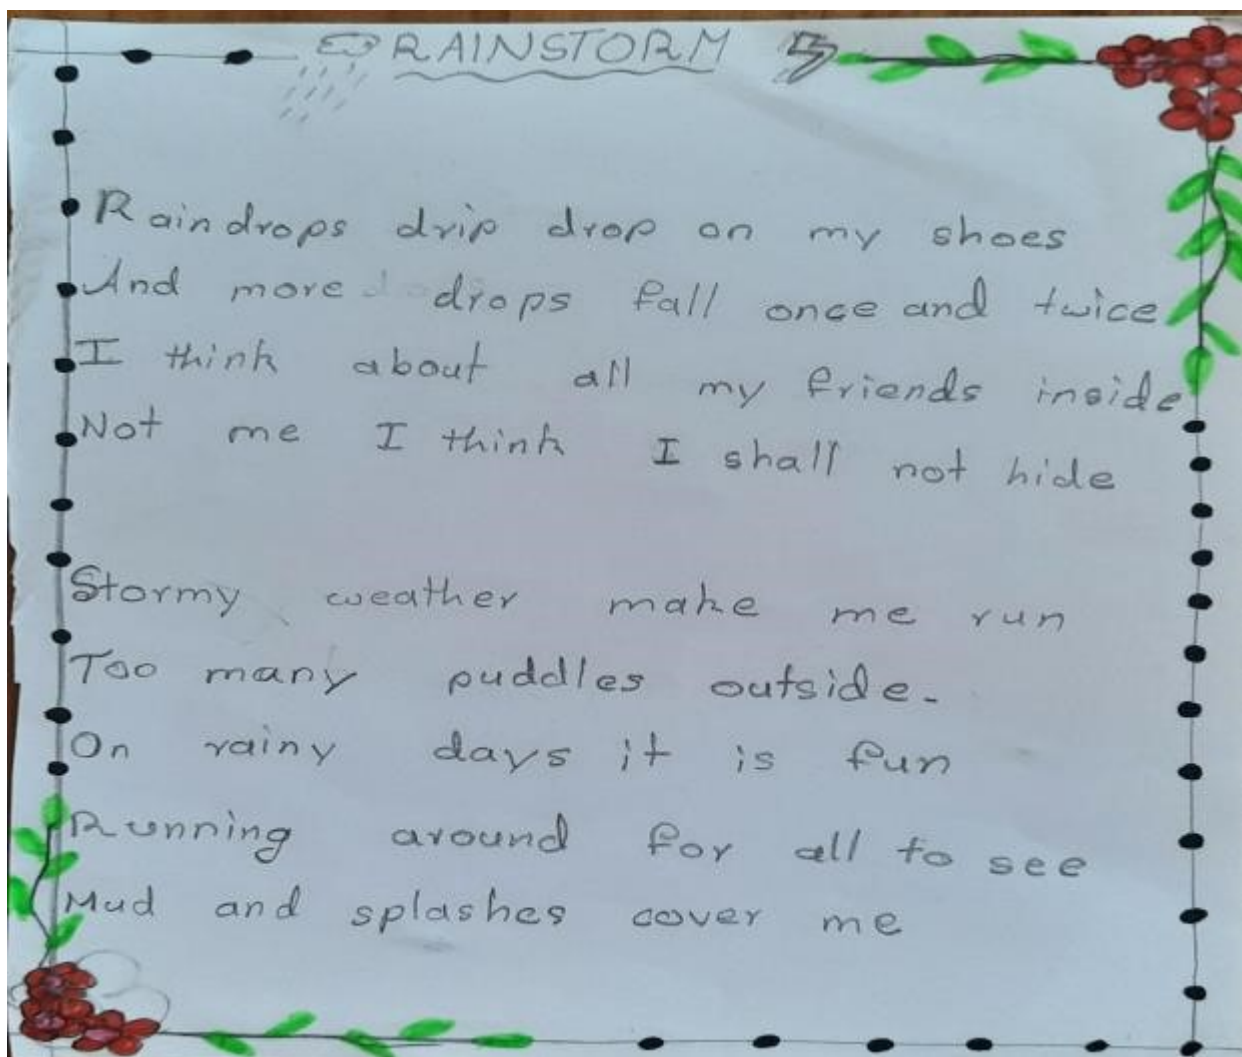 RAINSTORM
Raindrops drip drop on my shoes
And more drops fall once and twice
I think about all my friends inside
Not me I think I shall not hide
Stormy weather make me run
Too many puddles outside.
On rainy days it is fun
Running around for all to see
Mud and splashes cover me